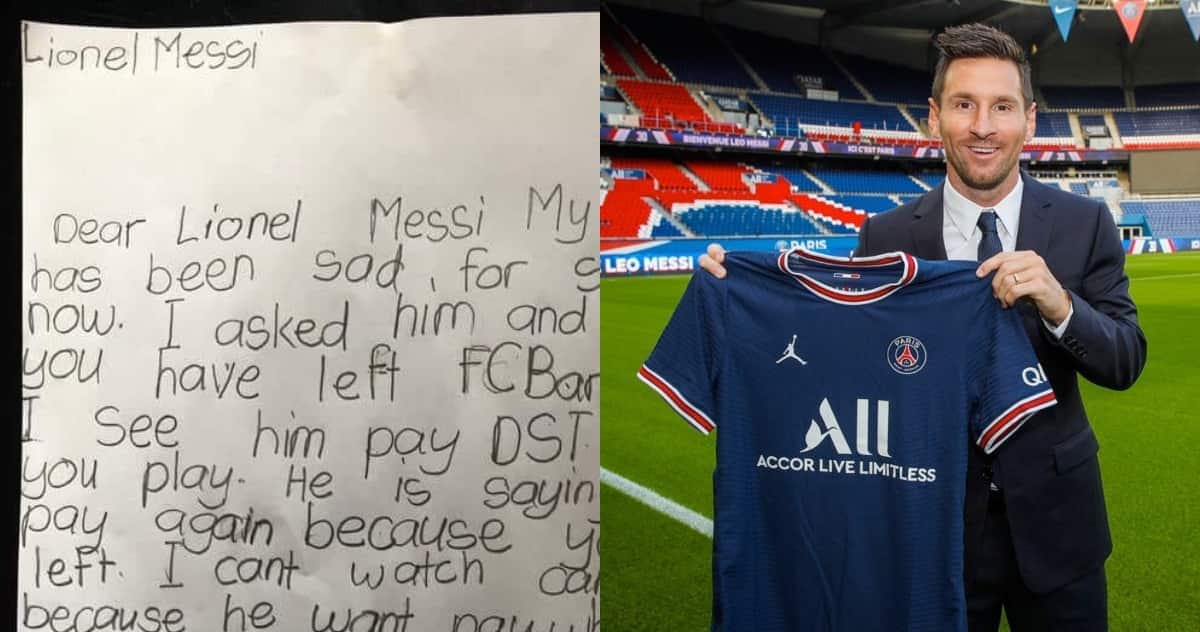 Lionel Messi
Dear Lionel Messi My
has been sad, for
now. I asked him and
you have left FCBar
I See him pay DST
you play. He is sayin
pay again because
left. I cant watch
because he want pay
BIENVENUE LEO MESSI
ICI C'EST PARIS
PARIS
LEO MESSI
PARIS
All
ACCOR LIVE LIMITLESS